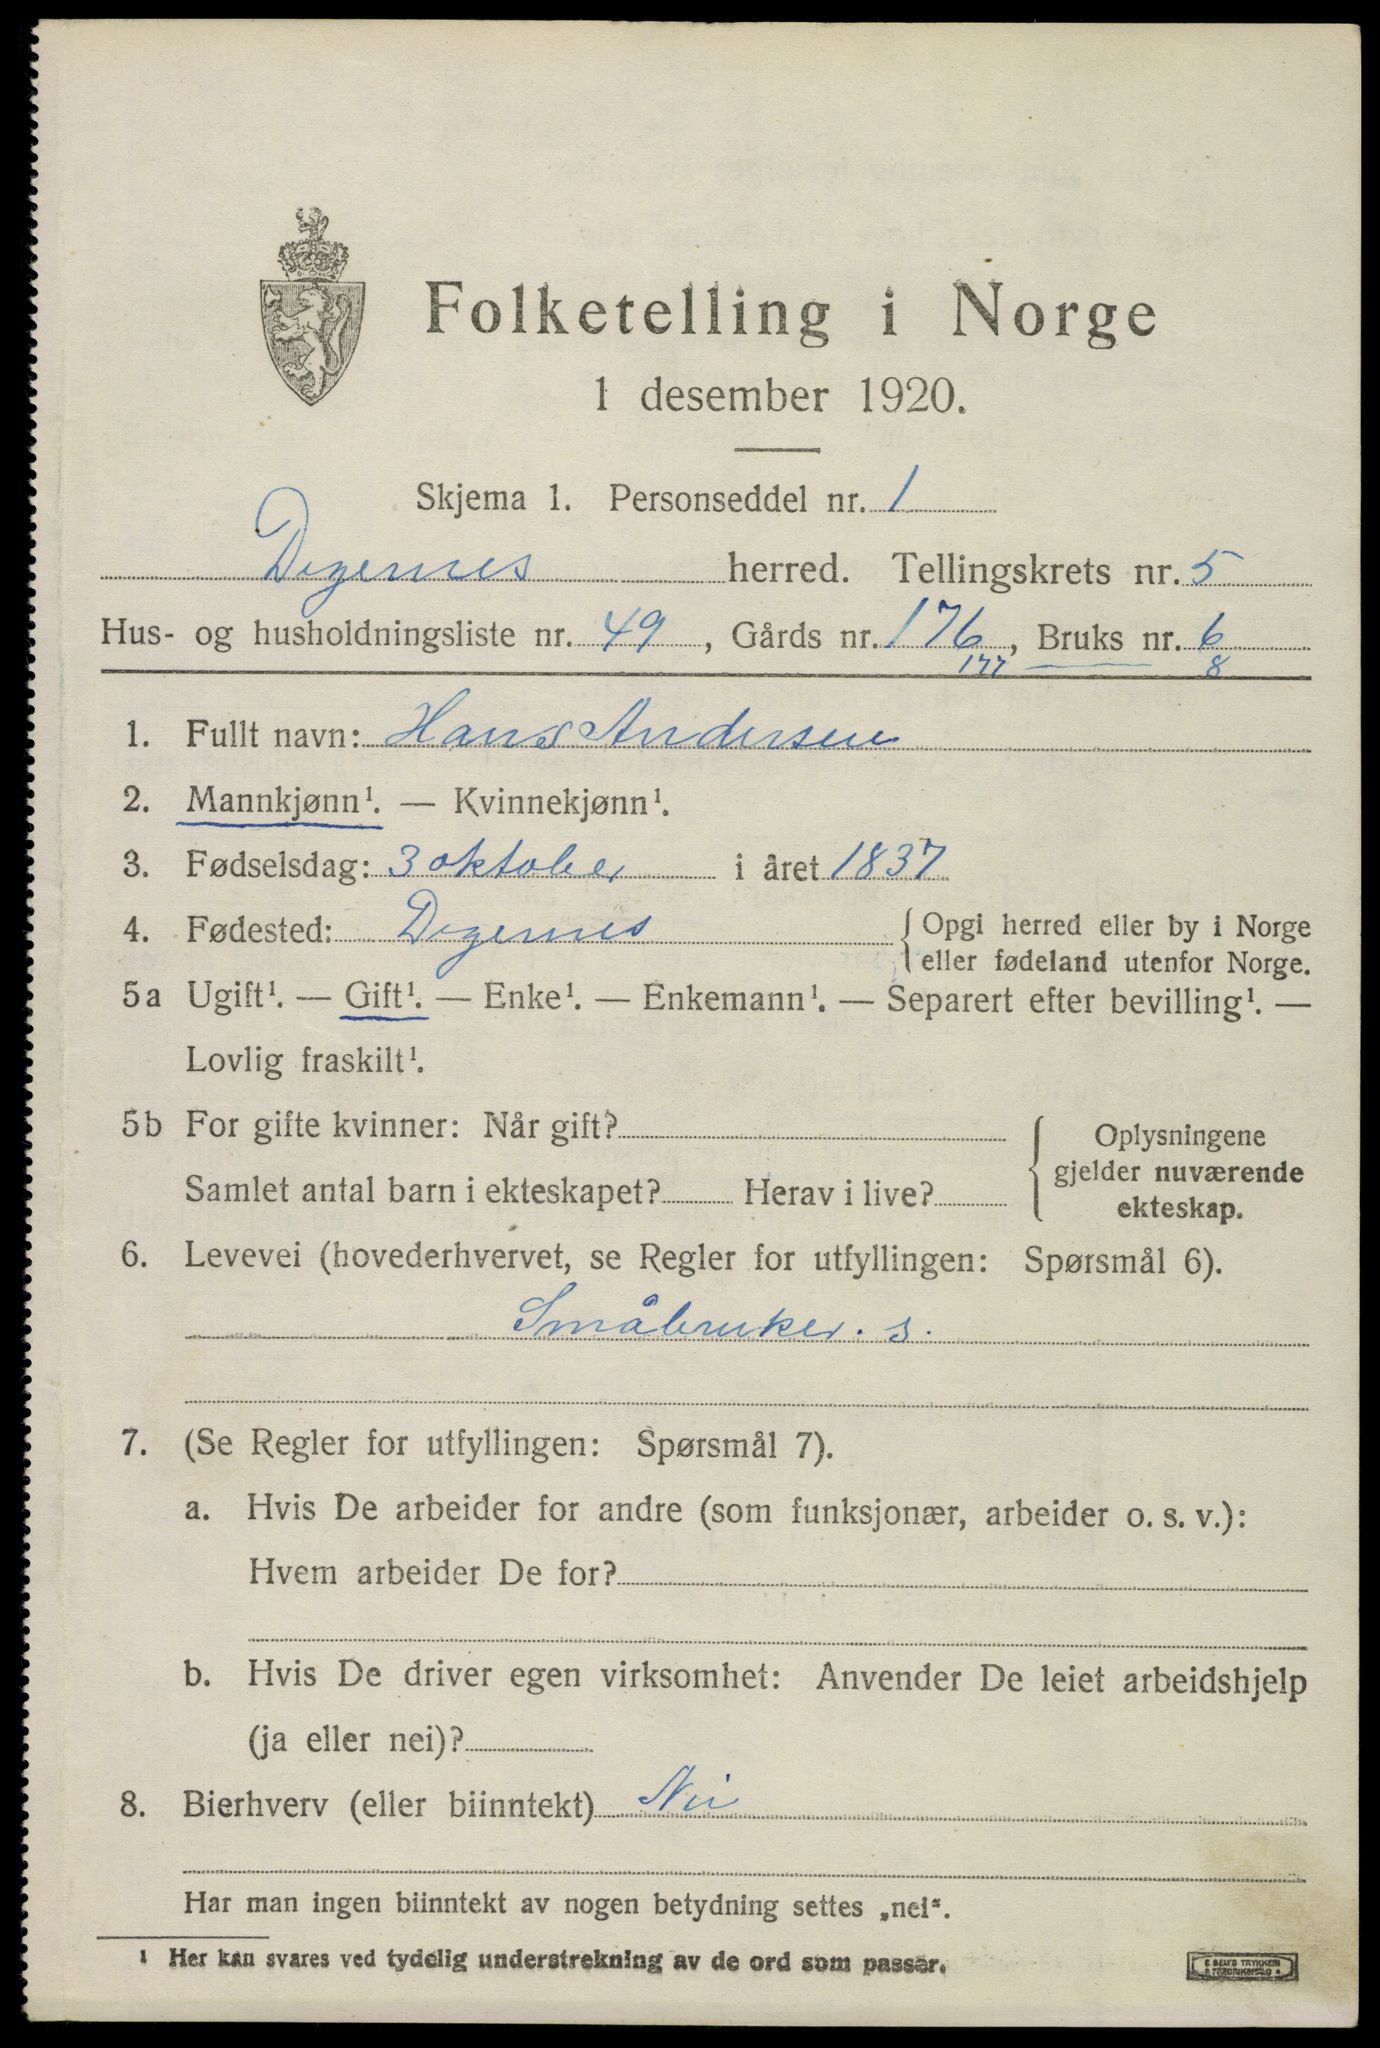 Folketelling i Norge
1 desember 1920.
Skjema 1. Personseddel nr. 1
Degernes herred. Tellingskrets nr. 5
Hus- og husholdningsliste nr. 49, Gårds nr. 176, Bruks nr. 6
177 8
1. Fullt navn: Hans Andersen
2. Mannkjønn¹. — Kvinnekjønn¹.
3. Fødselsdag: 3 oktober i året 1837
4. Fødested: Degernes { Opgi herred eller by i Norge
eller fødeland utenfor Norge.
5a Ugift¹. — Gift¹. — Enke¹. — Enkemann¹. — Separert efter bevilling¹. —
Lovlig fraskilt¹.
5b For gifte kvinner: Når gift?
Samlet antal barn i ekteskapet? Herav i live?
{ Oplysningene
gjelder nuværende
ekteskap.
6. Levevei (hovederhvervet, se Regler for utfyllingen: Spørsmål 6).
Småbruker. s.
7. (Se Regler for utfyllingen: Spørsmål 7).
a. Hvis De arbeider for andre (som funksjonær, arbeider o. s. v.):
Hvem arbeider De for?
b. Hvis De driver egen virksomhet: Anvender De leiet arbeidshjelp
(ja eller nei)?
8. Bierhverv (eller biinntekt) Nei
Har man ingen biinntekt av nogen betydning settes „nei“.
¹ Her kan svares ved tydelig understrekning av de ord som passer.